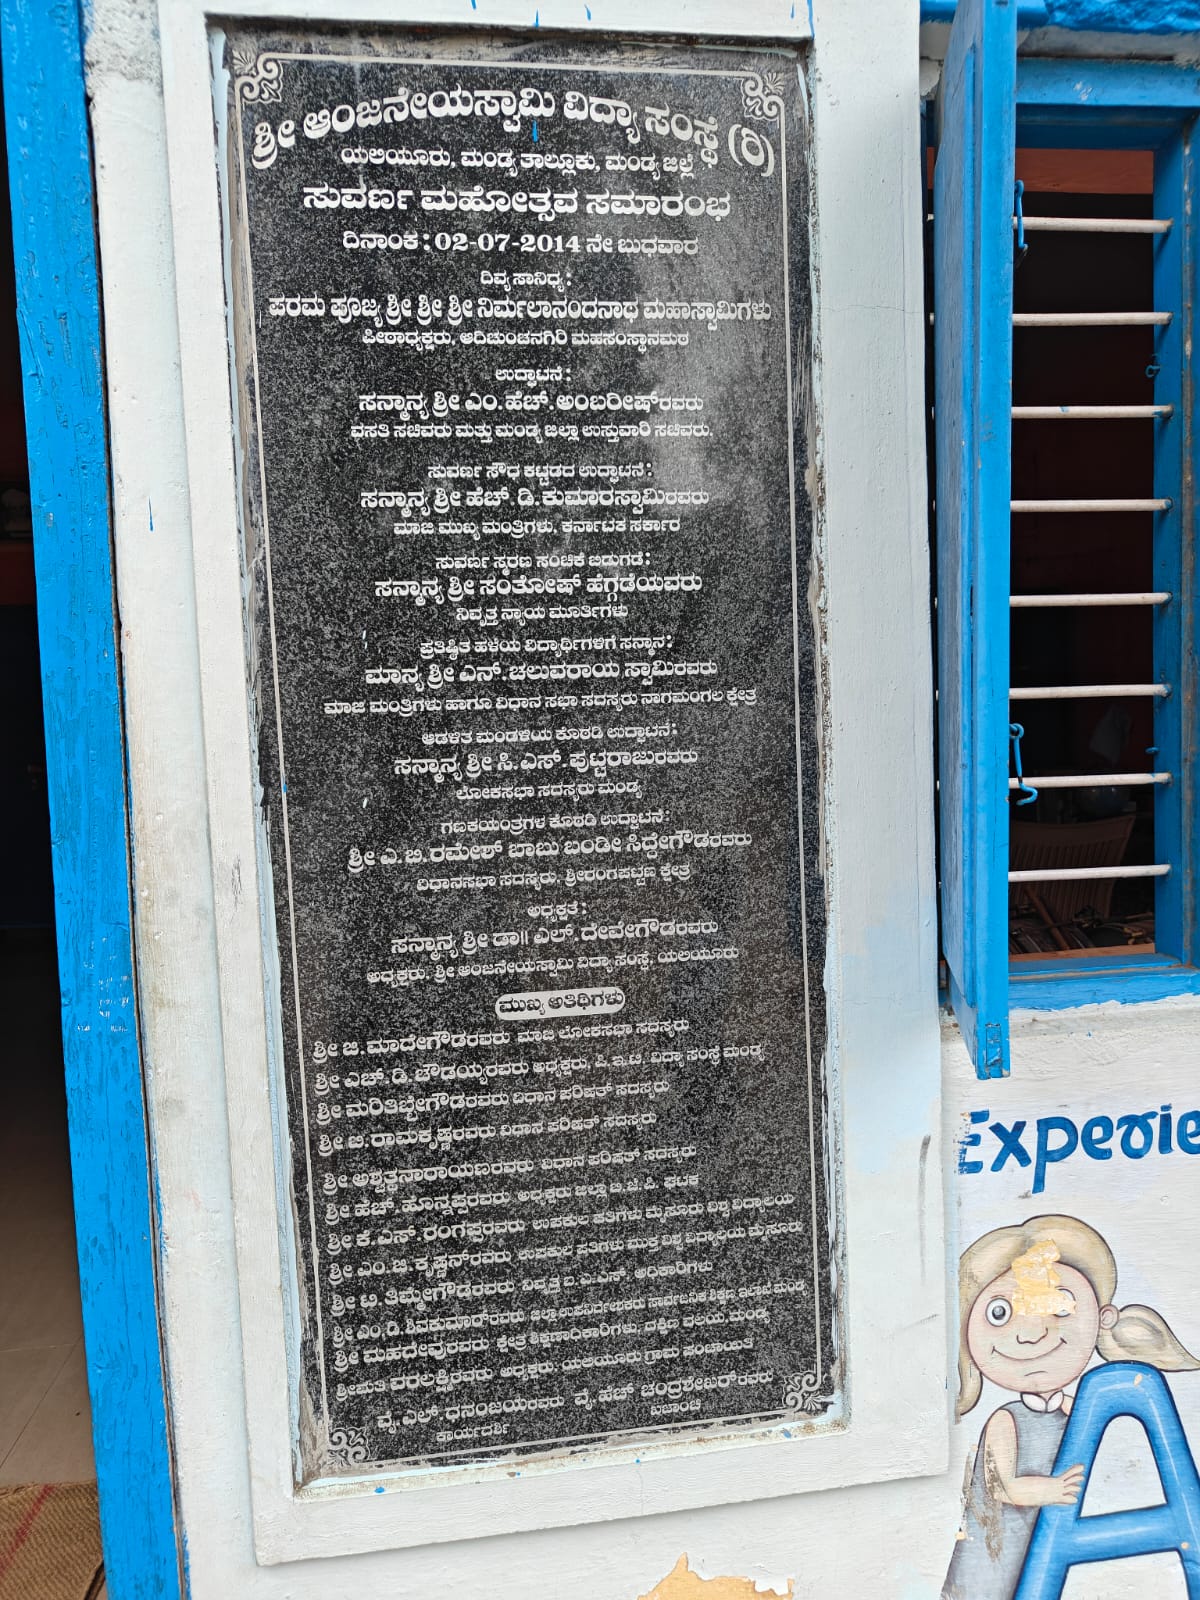 ಶ್ರೀ ಆಂಜನೇಯಸ್ವಾಮಿ ವಿದ್ಯಾ ಸಂಸ್ಥೆ (ರಿ)
ಯಲಿಯೂರು, ಮಂಡ್ಯ ತಾಲ್ಲೂಕು, ಮಂಡ್ಯ ಜಿಲ್ಲೆ
ಸುವರ್ಣ ಮಹೋತ್ಸವ ಸಮಾರಂಭ
ದಿನಾಂಕ : 02-07-2014 ನೇ ಬುಧವಾರ
ದಿವ್ಯ ಸಾನಿಧ್ಯ :
ಪರಮ ಪೂಜ್ಯ ಶ್ರೀ ಶ್ರೀ ಶ್ರೀ ನಿರ್ಮಲಾನಂದನಾಥ ಮಹಾಸ್ವಾಮಿಗಳು
ಪೀಠಾಧ್ಯಕ್ಷರು, ಆದಿಚುಂಚನಗಿರಿ ಮಹಸಂಸ್ಥಾನಮಠ
ಉದ್ಘಾಟನೆ :
ಸನ್ಮಾನ್ಯ ಶ್ರೀ ಎಂ.ಹೆಚ್.ಅಂಬರೀಷ್‌ರವರು
ವಸತಿ ಸಚಿವರು ಮತ್ತು ಮಂಡ್ಯ ಜಿಲ್ಲಾ ಉಸ್ತುವಾರಿ ಸಚಿವರು.
ಸುವರ್ಣ ಸೌಧ ಕಟ್ಟಡದ ಉದ್ಘಾಟನೆ :
ಸನ್ಮಾನ್ಯ ಶ್ರೀ ಹೆಚ್.ಡಿ.ಕುಮಾರಸ್ವಾಮಿರವರು
ಮಾಜಿ ಮುಖ್ಯ ಮಂತ್ರಿಗಳು, ಕರ್ನಾಟಕ ಸರ್ಕಾರ
ಸುವರ್ಣ ಸ್ಮರಣ ಸಂಚಿಕೆ ಬಿಡುಗಡೆ :
ಸನ್ಮಾನ್ಯ ಶ್ರೀ ಸಂತೋಷ್ ಹೆಗ್ಗಡೆಯವರು
ನಿವೃತ್ತ ನ್ಯಾಯ ಮೂರ್ತಿಗಳು
ಪ್ರತಿಷ್ಠಿತ ಹಳೆಯ ವಿದ್ಯಾರ್ಥಿಗಳಿಗೆ ಸನ್ಮಾನ :
ಮಾನ್ಯ ಶ್ರೀ ಎನ್.ಚಲುವರಾಯ ಸ್ವಾಮಿರವರು
ಮಾಜಿ ಮಂತ್ರಿಗಳು ಹಾಗೂ ವಿಧಾನ ಸಭಾ ಸದಸ್ಯರು ನಾಗಮಂಗಲ ಕ್ಷೇತ್ರ
ಆಡಳಿತ ಮಂಡಳಿಯ ಕೊಠಡಿ ಉದ್ಘಾಟನೆ :
ಸನ್ಮಾನ್ಯ ಶ್ರೀ ಸಿ.ಎಸ್.ಪುಟ್ಟರಾಜುರವರು
ಲೋಕಸಭಾ ಸದಸ್ಯರು ಮಂಡ್ಯ
ಗಣಕಯಂತ್ರಗಳ ಕೊಠಡಿ ಉದ್ಘಾಟನೆ :
ಶ್ರೀ ಎ.ಬಿ.ರಮೇಶ್ ಬಾಬು ಬಂಡೀ ಸಿದ್ದೇಗೌಡರವರು
ವಿಧಾನಸಭಾ ಸದಸ್ಯರು, ಶ್ರೀರಂಗಪಟ್ಟಣ ಕ್ಷೇತ್ರ
ಅಧ್ಯಕ್ಷತೆ :
ಸನ್ಮಾನ್ಯ ಶ್ರೀ ಡಾ|| ಎಲ್.ದೇವೇಗೌಡರವರು
ಅಧ್ಯಕ್ಷರು, ಶ್ರೀ ಆಂಜನೇಯಸ್ವಾಮಿ ವಿದ್ಯಾ ಸಂಸ್ಥೆ, ಯಲಯೂರು
ಮುಖ್ಯ ಅತಿಥಿಗಳು
ಶ್ರೀ ಜಿ.ಮಾದೇಗೌಡರವರು ಮಾಜಿ ಲೋಕಸಭಾ ಸದಸ್ಯರು
ಶ್ರೀ ಎಚ್.ಡಿ.ಚೌಡಯ್ಯರವರು ಅಧ್ಯಕ್ಷರು, ಪಿ.ಇ.ಟಿ. ವಿದ್ಯಾ ಸಂಸ್ಥೆ ಮಂಡ್ಯ
ಶ್ರೀ ಮರಿತಿಬ್ಬೇಗೌಡರವರು ವಿಧಾನ ಪರಿಷತ್ ಸದಸ್ಯರು
ಶ್ರೀ.ಬಿ.ರಾಮಕೃಷ್ಣರವರು ವಿಧಾನ ಪರಿಷತ್ ಸದಸ್ಯರು
ಶ್ರೀ ಅಶ್ವತ್ಥನಾರಾಯಣರವರು ವಿಧಾನ ಪರಿಷತ್ ಸದಸ್ಯರು
ಶ್ರೀ ಹೆಚ್.ಹೊನ್ನಪ್ಪರವರು ಅಧ್ಯಕ್ಷರು ಜಿಲ್ಲಾ ಬಿ.ಜೆ.ಪಿ. ಘಟಕ
ಶ್ರೀ ಕೆ.ಎಸ್.ರಂಗಪ್ಪರವರು ಉಪಕುಲ ಪತಿಗಳು ಮೈಸೂರು ವಿಶ್ವ ವಿದ್ಯಾಲಯ
ಶ್ರೀ ಎಂ.ಜಿ.ಕೃಷ್ಣನ್‌ರವರು ಉಪಕುಲ ಪತಿಗಳು ಮುಕ್ತ ವಿಶ್ವ ವಿದ್ಯಾಲಯ ಮೈಸೂರು
ಶ್ರೀ ಟಿ.ತಿಮ್ಮೇಗೌಡರವರು ನಿವೃತ್ತ ಐ.ಎ.ಎಸ್. ಅಧಿಕಾರಿಗಳು
ಶ್ರೀ ಎಂ.ಡಿ.ಶಿವಕುಮಾರ್‌ರವರು ಜಿಲ್ಲಾ ಉಪನಿರ್ದೇಶಕರು ಸಾರ್ವಜನಿಕ ಶಿಕ್ಷಣ ಇಲಾಖೆ ಮಂಡ್ಯ
ಶ್ರೀ ಮಹದೇವುರವರು ಕ್ಷೇತ್ರ ಶಿಕ್ಷಣಾಧಿಕಾರಿಗಳು, ದಕ್ಷಿಣ ವಲಯ, ಮಂಡ್ಯ
ಶ್ರೀಮತಿ ವರಲಕ್ಷ್ಮಿರವರು ಅಧ್ಯಕ್ಷರು: ಯಲಯೂರು ಗ್ರಾಮ ಪಂಚಾಯಿತಿ
ವೈ.ಎಲ್.ಧನಂಜಯರವರು ವೈ.ಹೆಚ್ ಚಂದ್ರಶೇಖರ್‌ರವರು
ಕಾರ್ಯದರ್ಶಿ ಖಜಾಂಚಿ
Experie
A